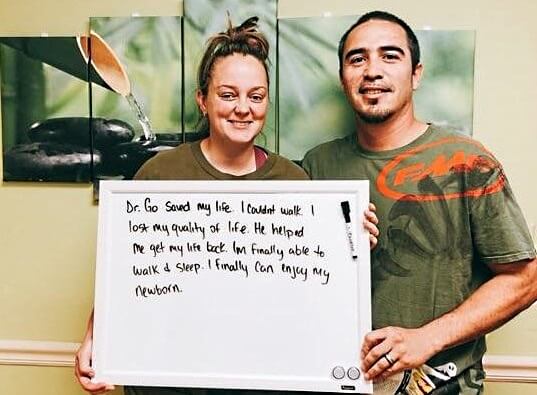 Dr. Go saved my life. I couldnt walk. I
lost my quality of life. He helped
me get my life back. Im finally able to
walk & sleep. I finally can enjoy my
newborn.
FMF